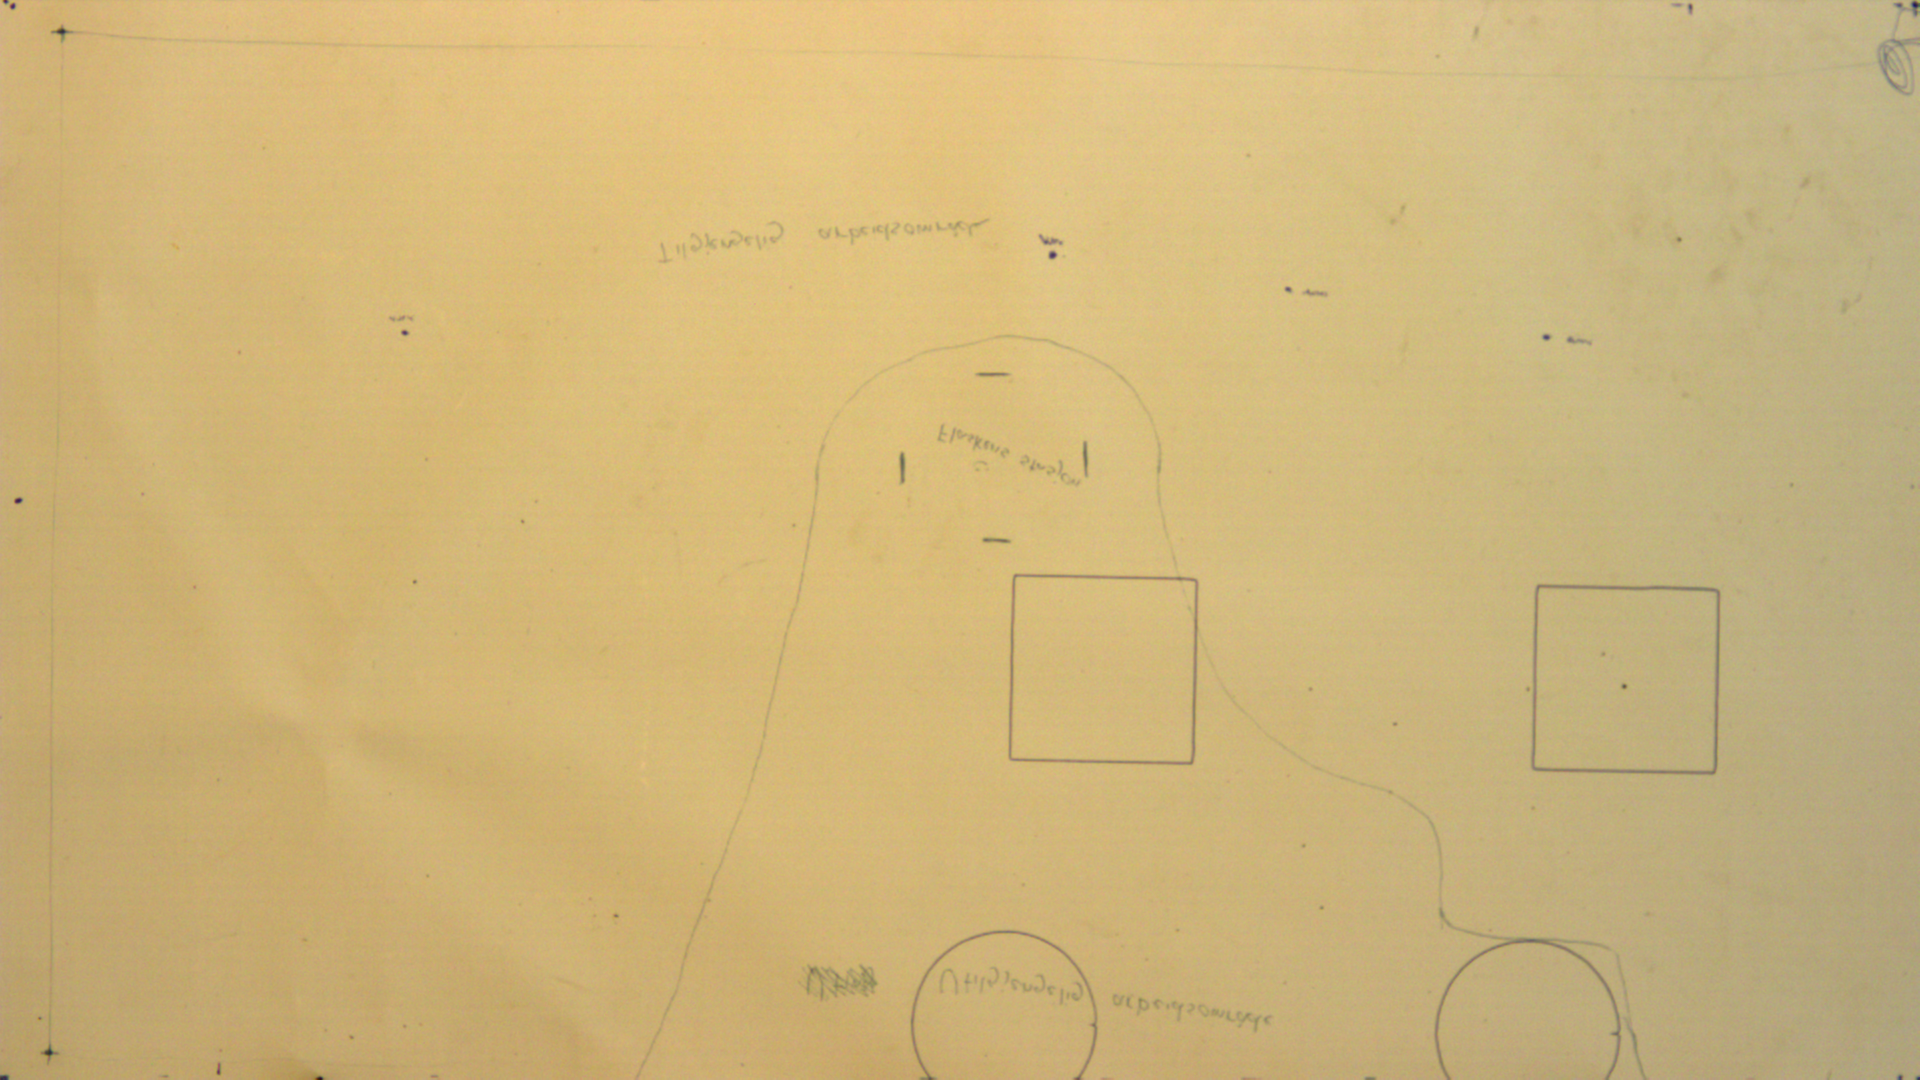 Tilgjengelig arbeidsområde
Flaskens stasjon
Utilgjengelig arbeidsområde